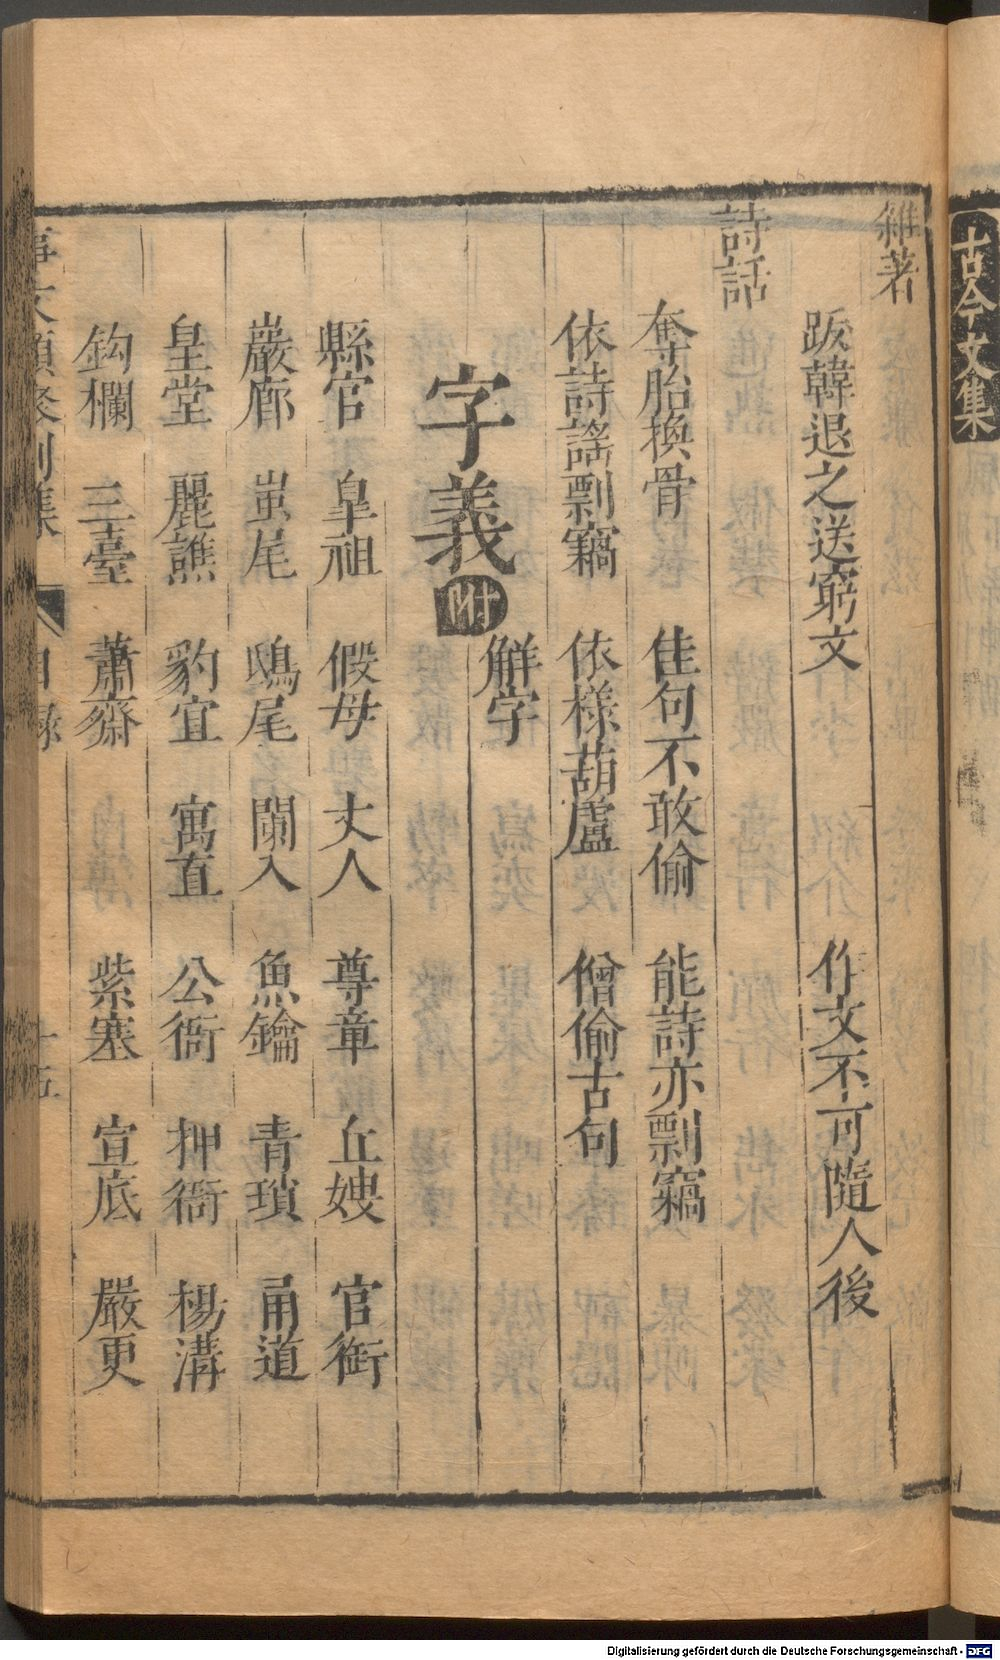 古今文集
雜著
跋韓退之送窮文　作文不可隨人後
詩話
奪胎換骨　佳句不敢偷　能詩亦剽竊
依詩謠剽竊　依樣葫蘆　僧偷古句
觧字
字義附
縣官　皇祖　假母　丈人　尊章　丘嫂　官銜
巖廊　蚩尾　鴟尾　闌入　魚鑰　青瑣　甬道
皇堂　麗譙　豹宜　寓直　公衙　押衙　楊溝
鈎欄　三臺　蕭齋　紫塞　宣底　嚴更
事文類聚別集　目錄　十五
Digitalisierung gefördert durch die Deutsche Forschungsgemeinschaft - DFG